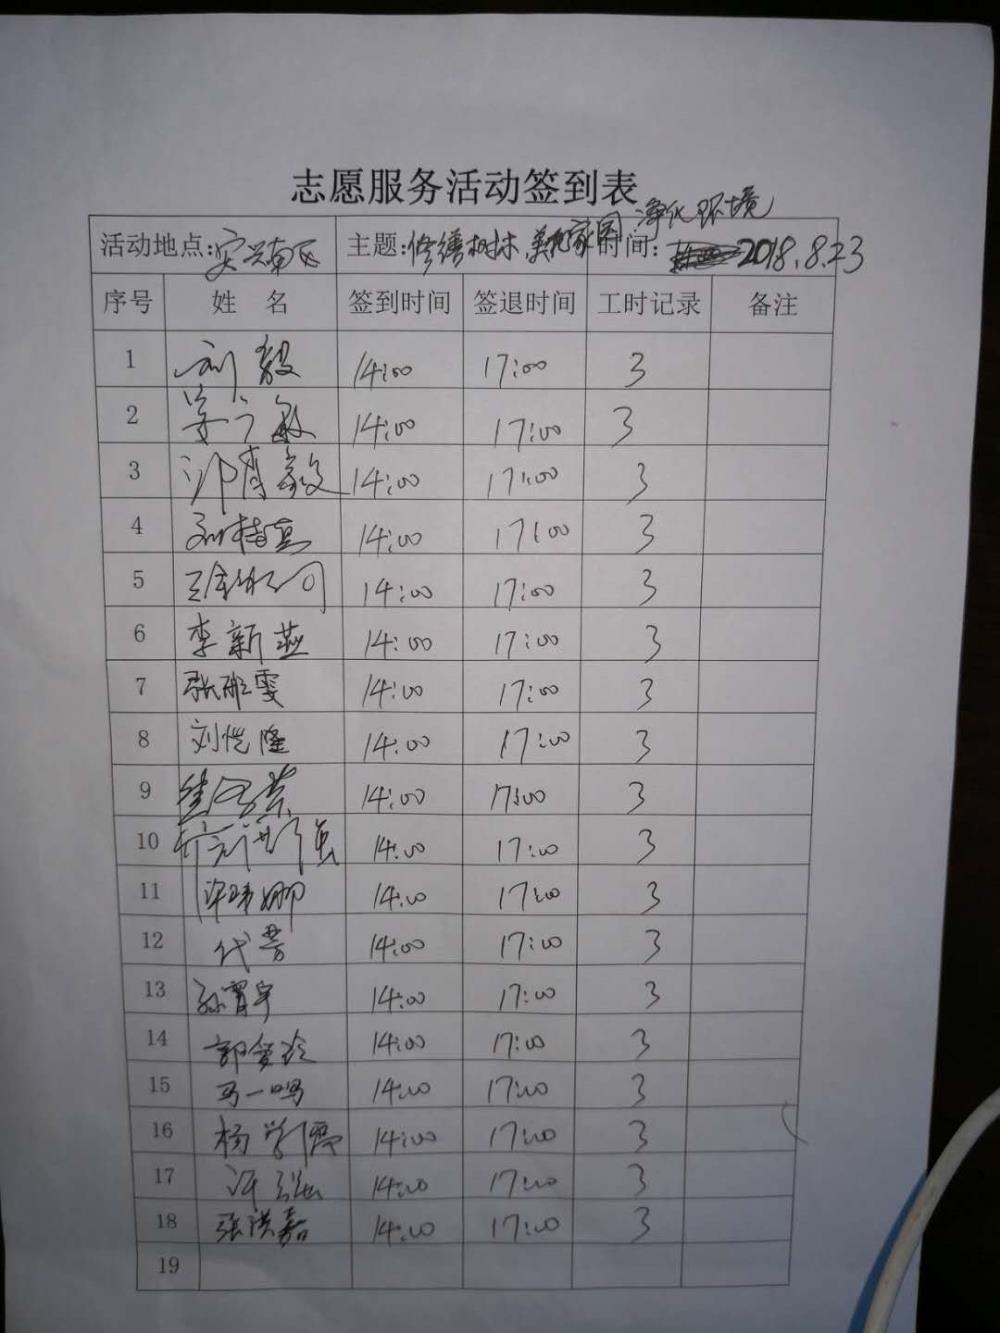 志愿服务活动签到表
净化环境
活动地点:安兴南区 主题:修缮树林,美化家园 时间: 2018.8.23
序号 姓 名 签到时间 签退时间 工时记录 备注
1 刘毅 14:00 17:00 3
2 14:00 17:00 3
3 14:00 17:00 3
4 14:00 17:00 3
5 14:00 17:00 3
6 李新燕 14:00 17:00 3
7 张雅雯 14:00 17:00 3
8 刘恺隆 14:00 17:00 3
9 14:00 17:00 3
10 14:00 17:00 3
11 14:00 17:00 3
12 代芳 14:00 17:00 3
13 14:00 17:00 3
14 14:00 17:00 3
15 马一鸣 14:00 17:00 3
16 14:00 17:00 3
17 14:00 17:00 3
18 张洪嘉 14:00 17:00 3
19